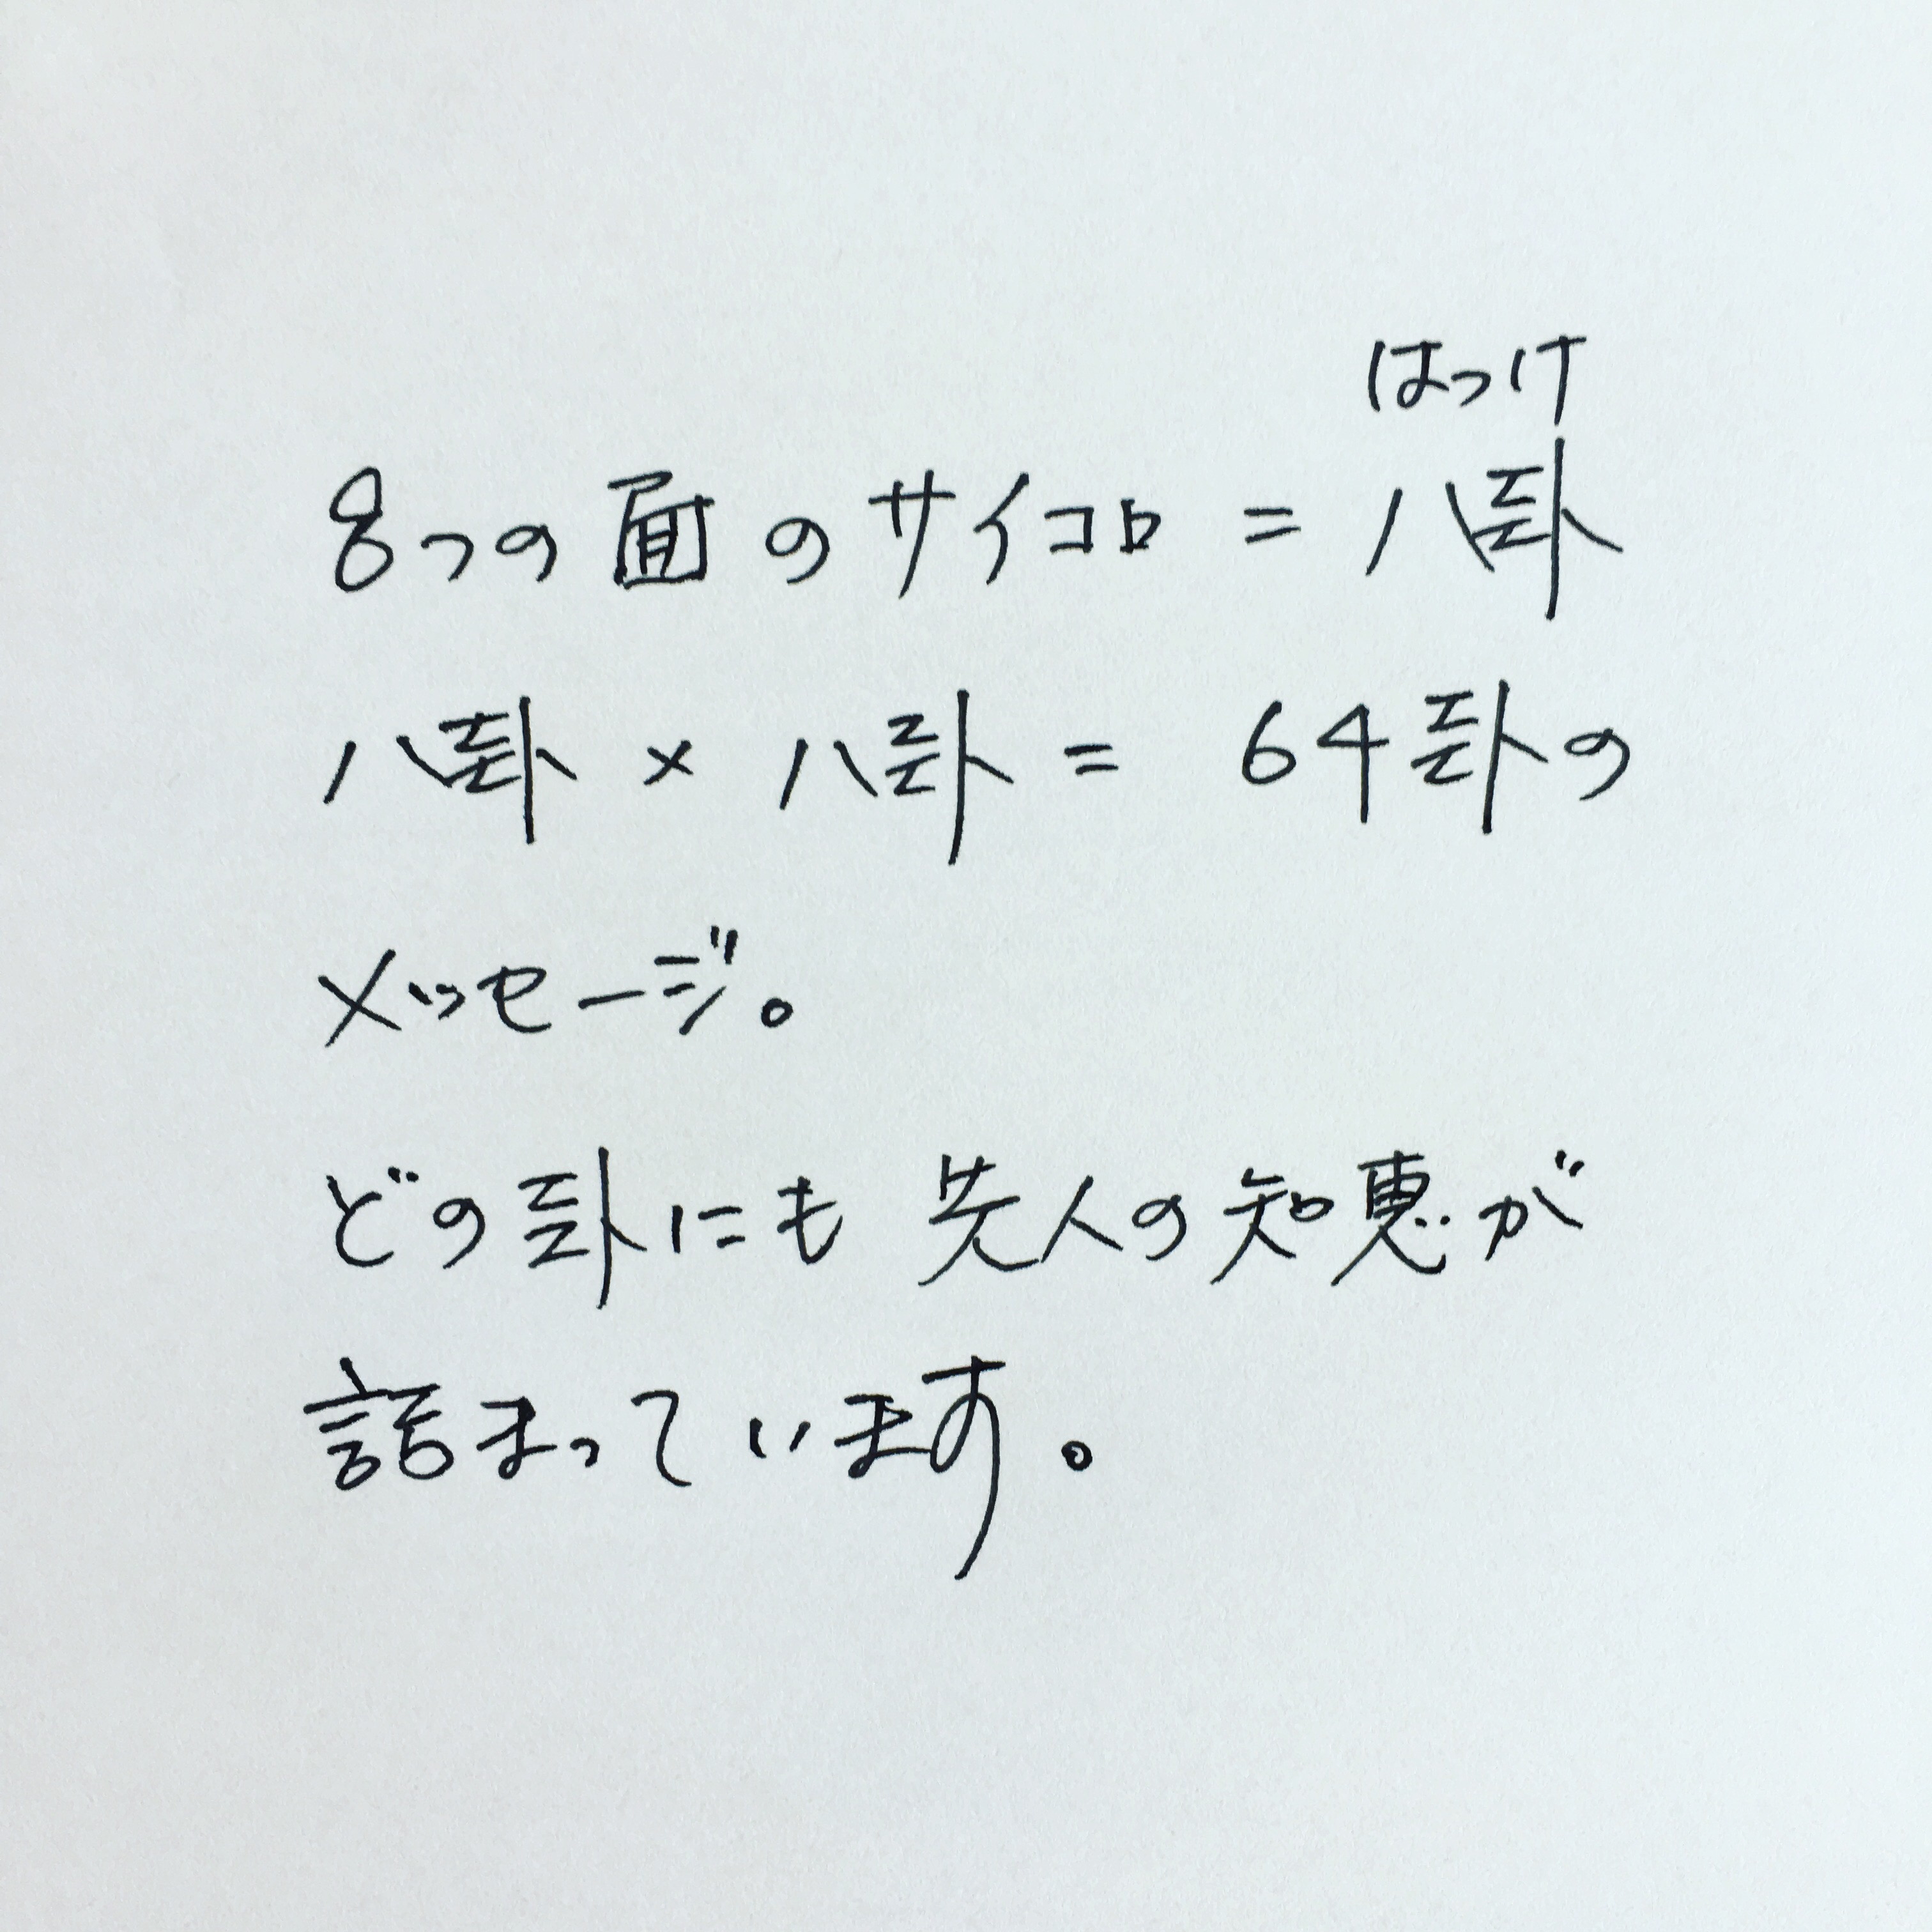 はっけ
8つの面のサイコロ = 八卦
八卦 × 八卦 = 64卦の
メッセージ。
どの卦にも 先人の知恵が
詰まっています。